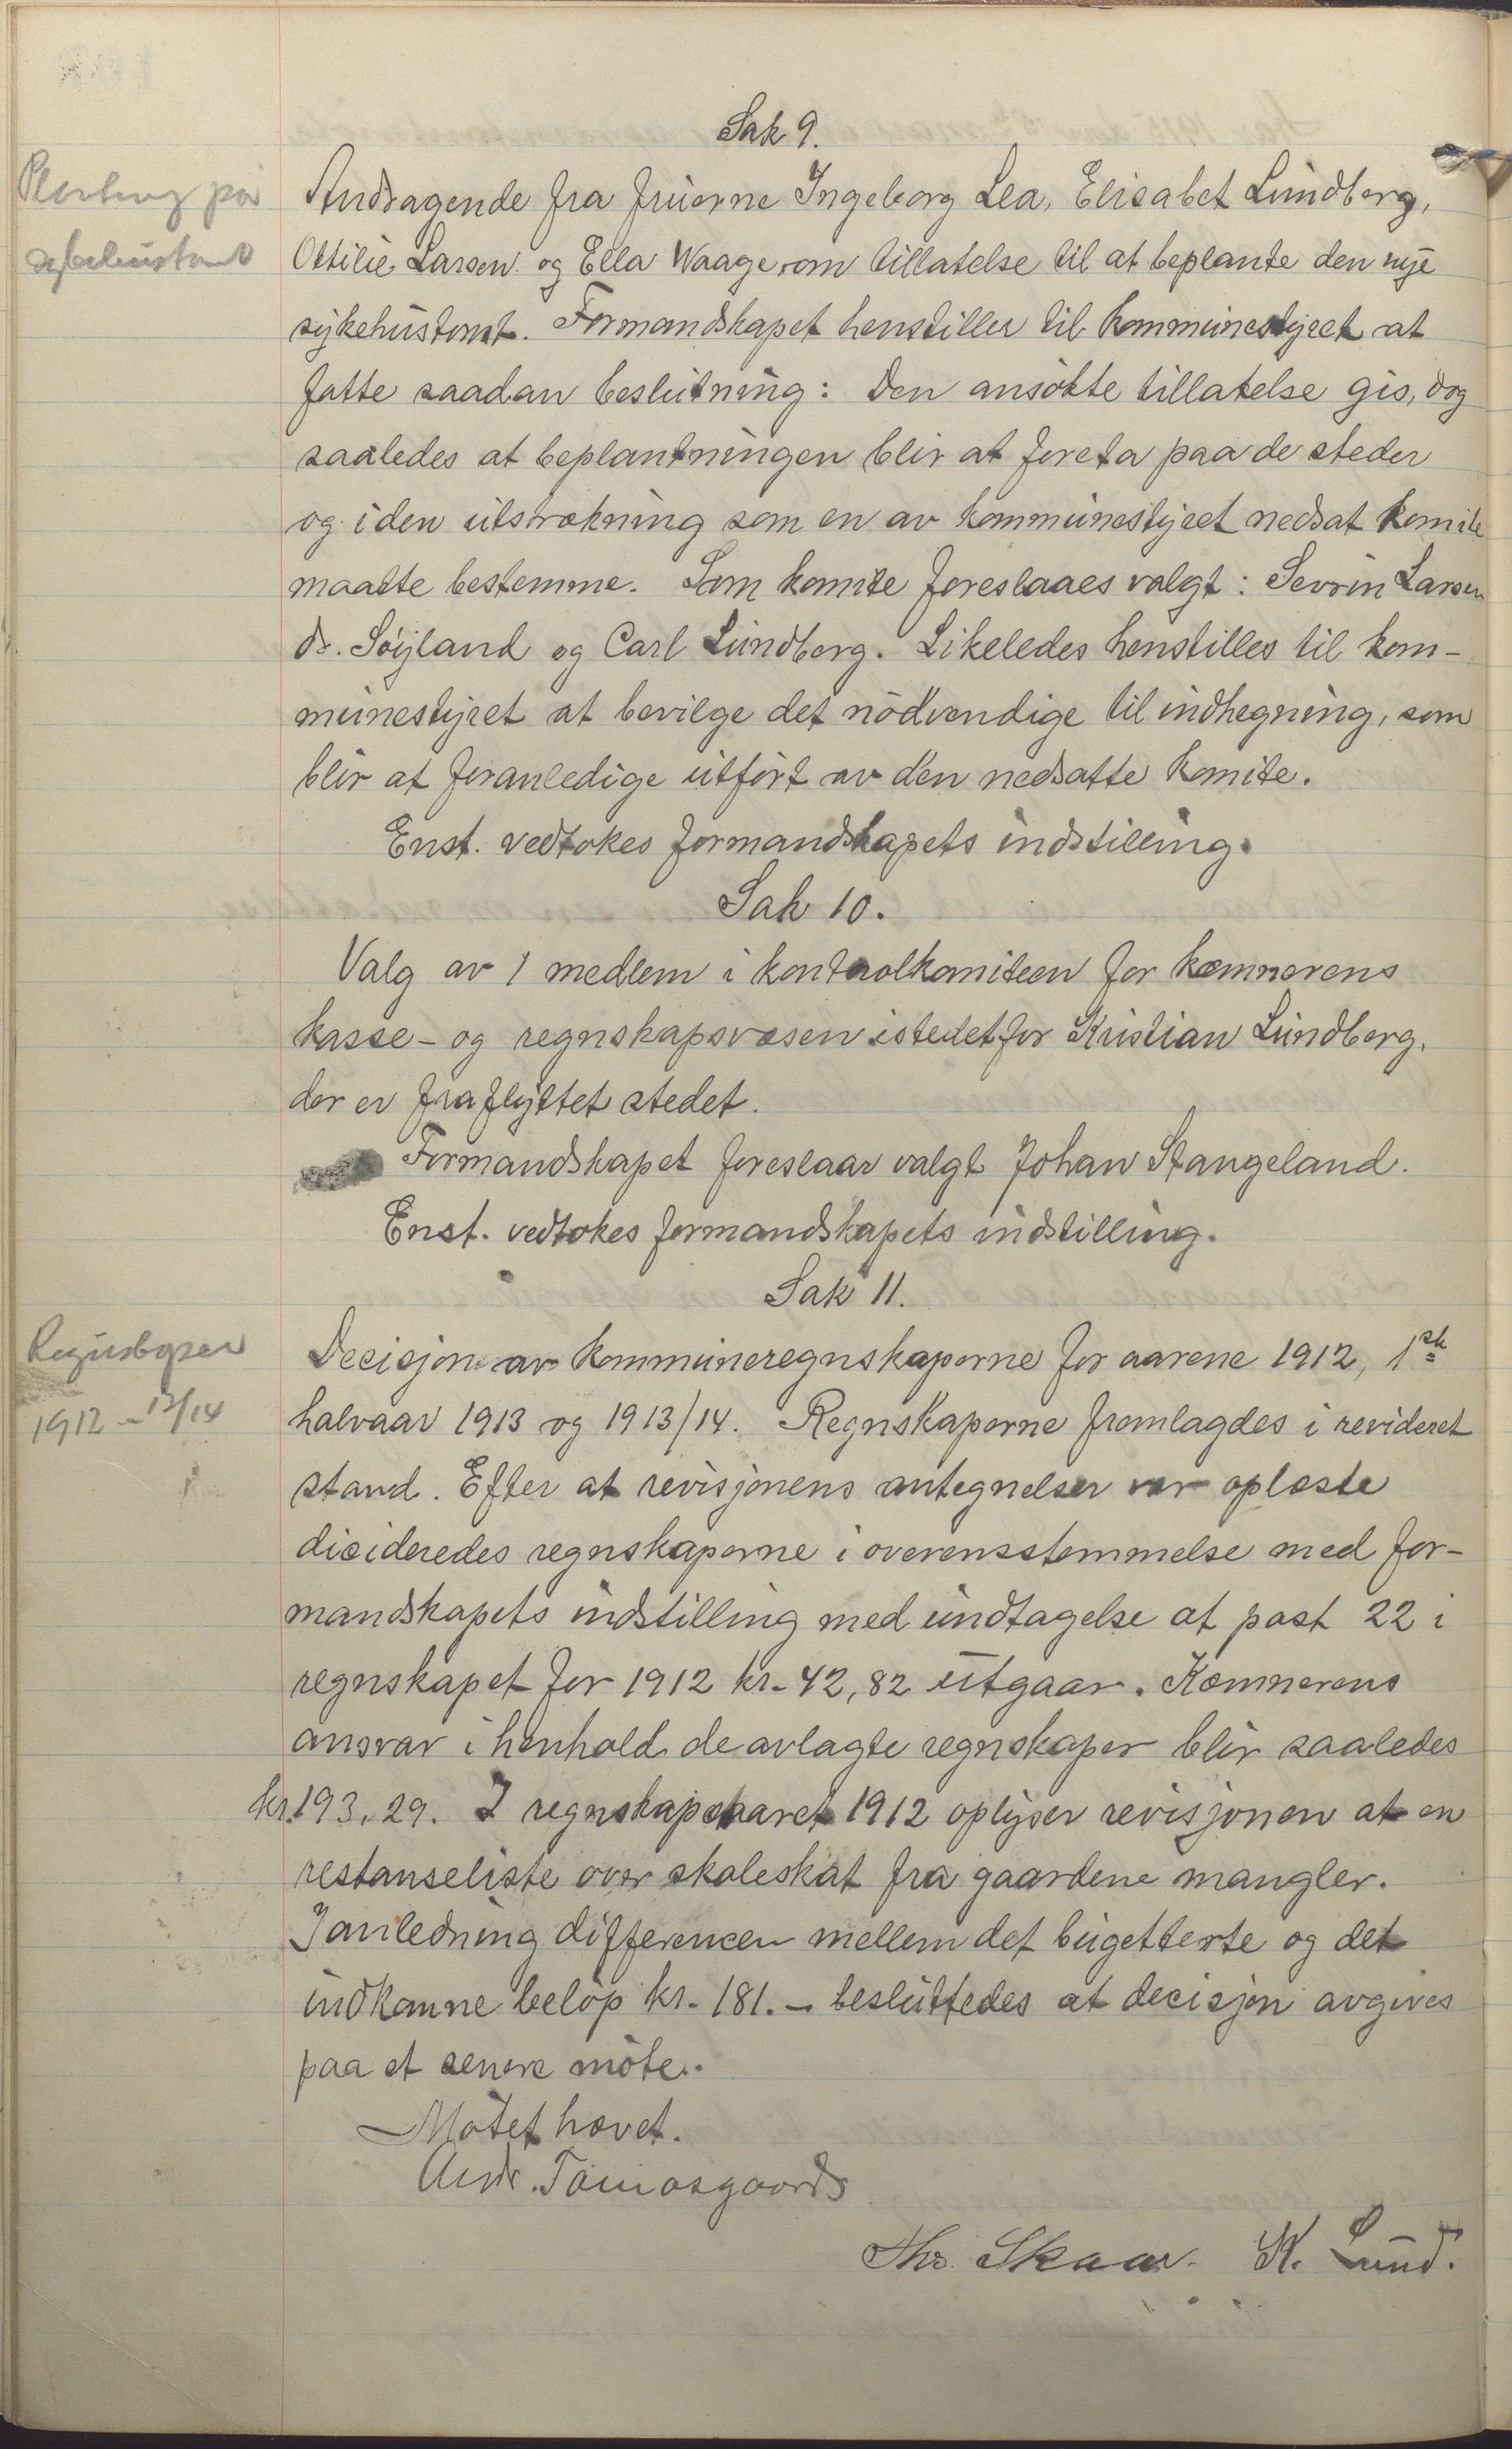 Sak 9.
Planting paa
sykehustomt
Andragende fra fruerne Ingeborg Lea, Elisabet Lundberg,
Ottilie Larsen og Ella Waage, om tillatelse til at beplante den nye
sykehustomt. Formandskapet henstiller til kommunestyret at
fatte saadan beslutning: Den ansökte tillatelse gis, dog
saaledes at beplantningen blir at foreta paa de steder
og i den utstrækning som en av kommunestyret nedsat komite
maatte bestemme. Som komite foreslaaes valgt: Sevrin Larsen
dr. Söyland og Carl Lundberg. Likeledes henstilles til kom-
munestyret at bevilge det nödvendige til indhegning, som
blir at foranledige utfört av den nedsatte komite.
Enst. vedtokes formandskapets indstilling.
Sak 10.
Valg av 1 medlem i kontrolkomiteen for kæmnerens
kasse- og regnskapsvæsen istedetfor Kristian Lundberg,
der er fraflyttet stedet.
Formandskapet foreslaar valgt Johan Stangeland.
Enst. vedtokes formandskapets indstilling.
Sak 11.
Regnskaper
1912 - 13/14
Decisjon av kommuneregnskaperne for aarene 1912, 1ste
halvaar 1913 og 1913/14. Regnskaperne fremlagdes i revideret
stand. Efter at revisjonens antegnelser var oplæste
disideredes regnskaperne i overensstemmelse med for-
mandskapets indstilling med undtagelse at post 22 i
regnskapet for 1912 kr. 42,82 utgaar. Kæmnerens
ansvar i henhold de avlagte regnskaper blir saaledes
kr. 193,29. I regnskapsaaret 1912 oplyser revisjonen at en
restanseliste over skoleskat fra gaardene mangler.
I anledning differencen mellem det bugetterte og det
indkomne belöp kr. 181.- besluttedes at decisjon avgives
paa et senere möte.
Mötet hævet.
Andr. Tomasgaard
Thr. Skaar. K. Lund.